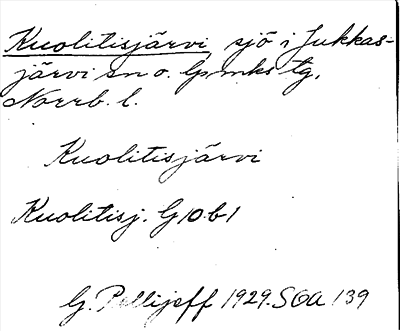 Kuolitisjärvi, sjö i Jukkas-
järvi sn o. lpmks tg,
Norrb. l.
Kuolitisjärvi
Kuolitisj. G10b1
G. Pellijeff 1929. SOA 139